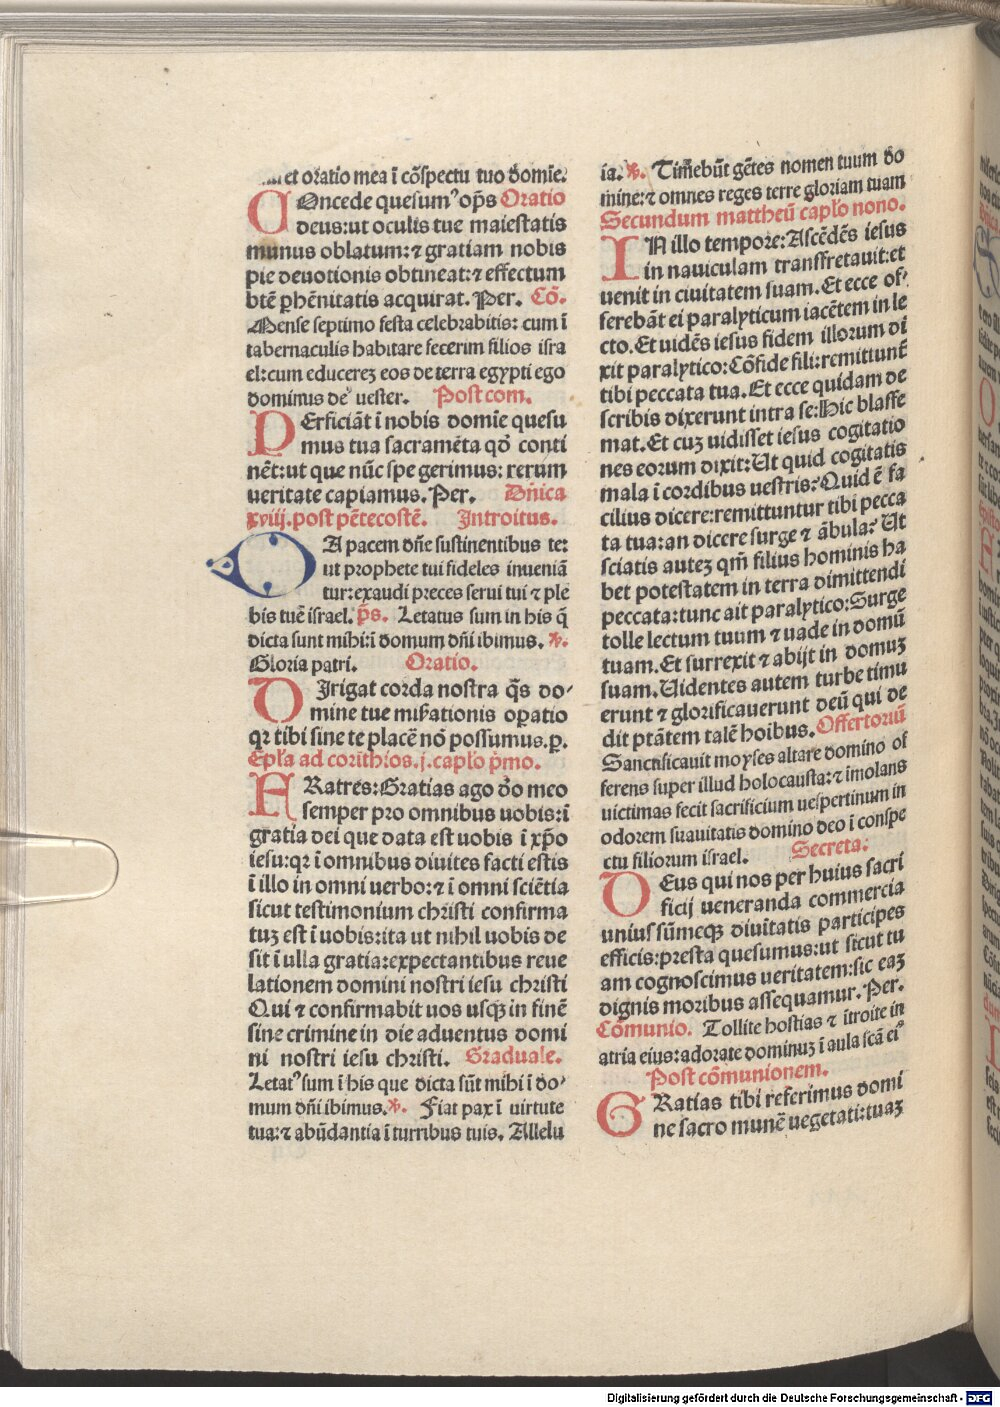 et oratio mea ī cōspectu tuo domīe.
COncede quesumꝰ oꝑs Oratio
deus:ut oculis tue maiestatis
munus oblatum:⁊ gratiam nobis
pie deuotionis obtineat:⁊ effectum
btē ꝑhēnitatis acquirat. Per. Cō.
Mense septimo festa celebrabitis: cum ī
tabernaculis habitare fecerim filios isra
el:cum educereꝫ eos de terra egypti ego
dominus deꝰ uester. Post com.
PErficiāt ī nobis domīe quesu
mus tua sacramēta qd̄ conti
nēt:ut que nūc spe gerimus: rerum
ueritate capiamus. Per. Dn̄ica
xviij. post pētecostē. Introitus.
DA pacem dn̄e sustinentibus te:
ut prophete tui fideles inueniā
tur:exaudi preces serui tui ⁊ ple
bis tuē israel. p̄s. Letatus sum in his q̄
dicta sunt mihi:ī domum dn̄i ibimus. ℣.
Gloria patri. Oratio.
DIrigat corda nostra q̄s do⸗
mine tue mis̄ationis oꝑatio
qꝛ tibi sine te placē nō possumus. p.
Epl̄a ad corīthios. j. capl̓o p̄mo.
FRatres:Gratias ago do̓ meo
semper pro omnibus uobis:ī
gratia dei que data est uobis ī xp̄o
iesu:qꝛ ī omnibus diuites facti estis
ī illo in omni uerbo:⁊ ī omni sciētia
sicut testimonium christi confirma
tuꝫ est ī uobis:ita ut nihil uobis de
sit ī ulla gratia:expectantibus reue
lationem domini nostri iesu christi
Qui ⁊ confirmabit uos usqꝫ in finē
sine crimine in die aduentus domi
ni nostri iesu christi. Graduale.
Letatꝰ sum ī his que dicta sūt mihi ī do⸗
mum dn̄i ibimus. ℣. Fiat pax ī uirtute
tua:⁊ abūdantia ī turribus tuis. Allelu
ia. ℣. Timebūt gētes nomen tuum do
mine:⁊ omnes reges terre gloriam tuam
Secundum mattheū capl̓o nono.
IN illo tempore:Ascēdēs iesus
in nauiculam transfretauit:et
uenit in ciuitatem suam. Et ecce of⸗
ferebāt ei paralyticum iacētem in le
cto. Et uidēs iesus fidem illorum di
xit paralytico:Cōfide fili:remittunt̄
tibi peccata tua. Et ecce quidam de
scribis dixerunt intra se:Hic blasfe
mat. Et cuꝫ uidisset iesus cogitatio
nes eorum dixit:Ut quid cogitatis
mala ī cordibus uestris:Quid ē fa
cilius dicere:remittuntur tibi pecca
ta tua:an dicere surge ⁊ ābula? Ut
sciatis auteꝫ qm̄ filius hominis ha
bet potestatem in terra dimittendi
peccata:tunc ait paralytico:Surge
tolle lectum tuum ⁊ uade in domū
tuam. Et surrexit ⁊ abijt in domuꝫ
suam. Uidentes autem turbe timu
erunt ⁊ glorificauerunt deū qui de
dit ptātem talē hoībus. Offertoriū
Sanctificauit moyses altare domino of
ferens super illud holocausta:⁊ īmolans
uictimas fecit sacrificium uespertinum in
odorem suauitatis domino deo ī conspe
ctu filiorum israel. Secreta.
DEus qui nos per huius sacri
ficij ueneranda commercia
unius sūmeqꝫ diuītatis participes
efficis:presta quesumus:ut sicut tu
am cognoscimus ueritatem:sic eaꝫ
dignis moribus assequamur. Per.
Cōmunio. Tollite hostias ⁊ ītroite in
atria eius:adorate dominuꝫ ī aula scā eiꝰ
Post cōmunionem.
GRatias tibi referimus domi
ne sacro munē uegetati:tuaꝫ
Digitalisierung gefördert durch die Deutsche Forschungsgemeinschaft - DFG